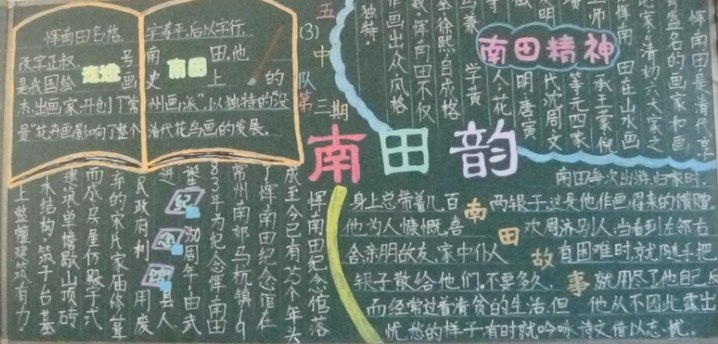 恽南田名格, 字寿平,后以字行.
改字正叔, 号南田,他
是我国绘画史上的
杰出画家,开创了"常州画派",以独特的"没
骨"花卉画影响了整个清代花鸟画的发展.
南田
五(3)中队第二期
南田韵
南田精神
恽南田是清代享
有盛名的画家和画
论家"清初六大家之
恽南田在山水画
上师承王蒙倪
等元四家
明代沈周文
明唐寅
兼学黄
至徐熙,自成格
数,恽南田不仅
作画出众,风格
独特,
恽南田纪念馆落
成至今已有25个年头
了恽南田纪念馆在
常州南郊马杭镇,19
83年为纪念恽南田
350周年,由武
进县人
民政府利用废
弃的宋氏家庙修葺
而成,房屋仍殿于式
建筑,单檐歇山顶,砖
木结构,筑于台基
上,整幢建筑有力.
纪念馆
南田故事
南田每次出游归家时,
身上总带着几百两银子,这是他作画得来的馈赠.
他为人慷慨,喜欢周济别人,当看到左邻右
舍、亲朋故友、家中仆人自困难时,就随手把
银子散给他们,不要多久就用尽了,他自己反
而经常过着清贫的生活,但他从不因此露出
忧愁的样子,有时就吟咏诗文借以忘忧.